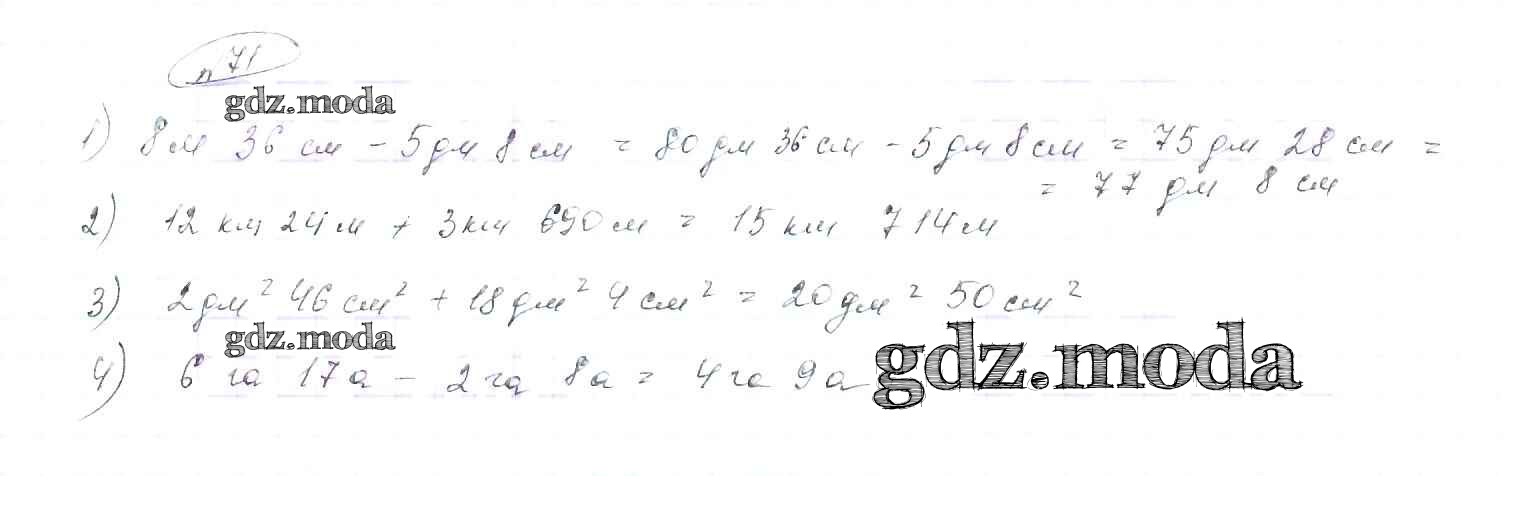 №71
gdz.moda
1) 8м 36 см - 5дм 8 см = 80 дм 36 см - 5дм 8 см = 75 дм 28 см =
= 77 дм 8 см
2) 12 км 24 м + 3 км 690 м = 15 км 714 м
3) 2 дм² 46 см² + 18 дм² 4 см² = 20 дм² 50 см²
gdz.moda
4) 6 га 17 а - 2 га 8 а = 4 га 9 а
gdz.moda